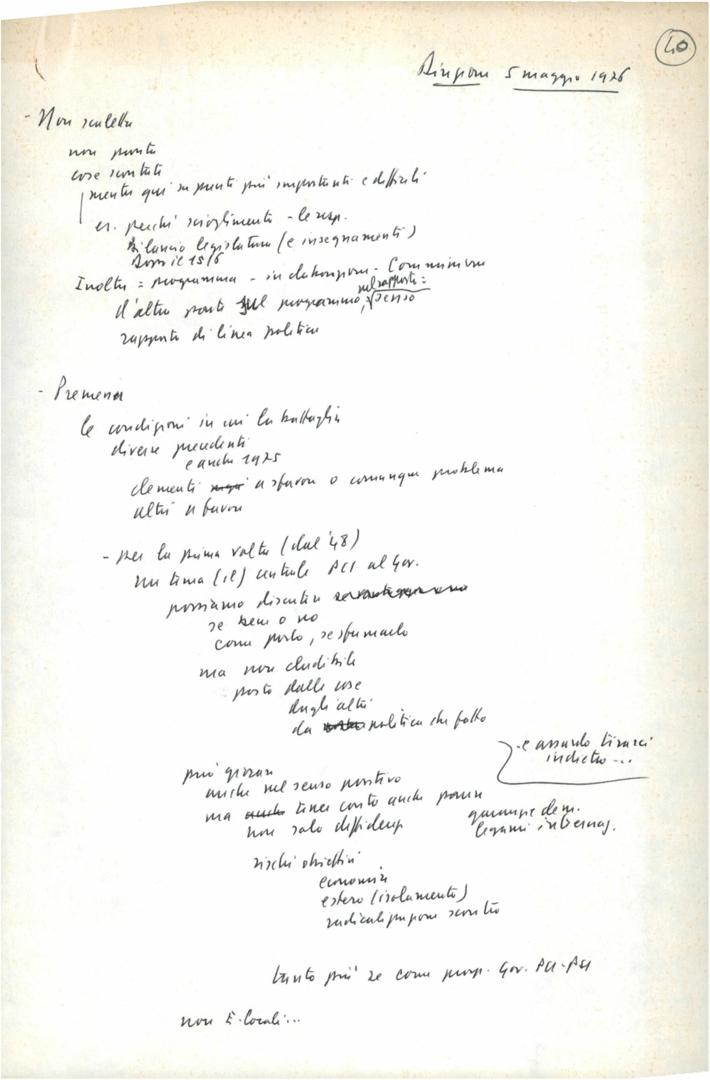 40
Direzione 5 maggio 1976
- Non scaletta
non punto
cose scontate
mentre qui su punti più importanti e difficili
es. perché scioglimento - le resp.
Bilancio legislatura (e insegnamenti)
dopo il 15/6
Inoltre = programma - in elaborazione - Commissione
sul rapporto =
d'altra parte sul programma, senso
rapporto di linea politica
- Premessa
le condizioni in cui la battaglia
diverse precedenti
e anche 1975
elementi a sfavore o comunque problema
altri a favore
- per la prima volta (dal '48)
un tema (il) centrale PCI al Gov.
possiamo discutere
se bene o no
come porlo, se sfumarlo
ma non eludibile
posto dalle cose
dagli altri
da politica che fatto
- e assurdo tirarci
indietro...
può giocare
anche nel senso positivo
ma tener conto anche paure
non solo diffidenze
garanzie dem.
legami internaz.
rischi obiettivi
economia
estero (isolamento)
radicalizzazione scontro
tanto più se come prosp. Gov. PCI-PSI
non E. locali...